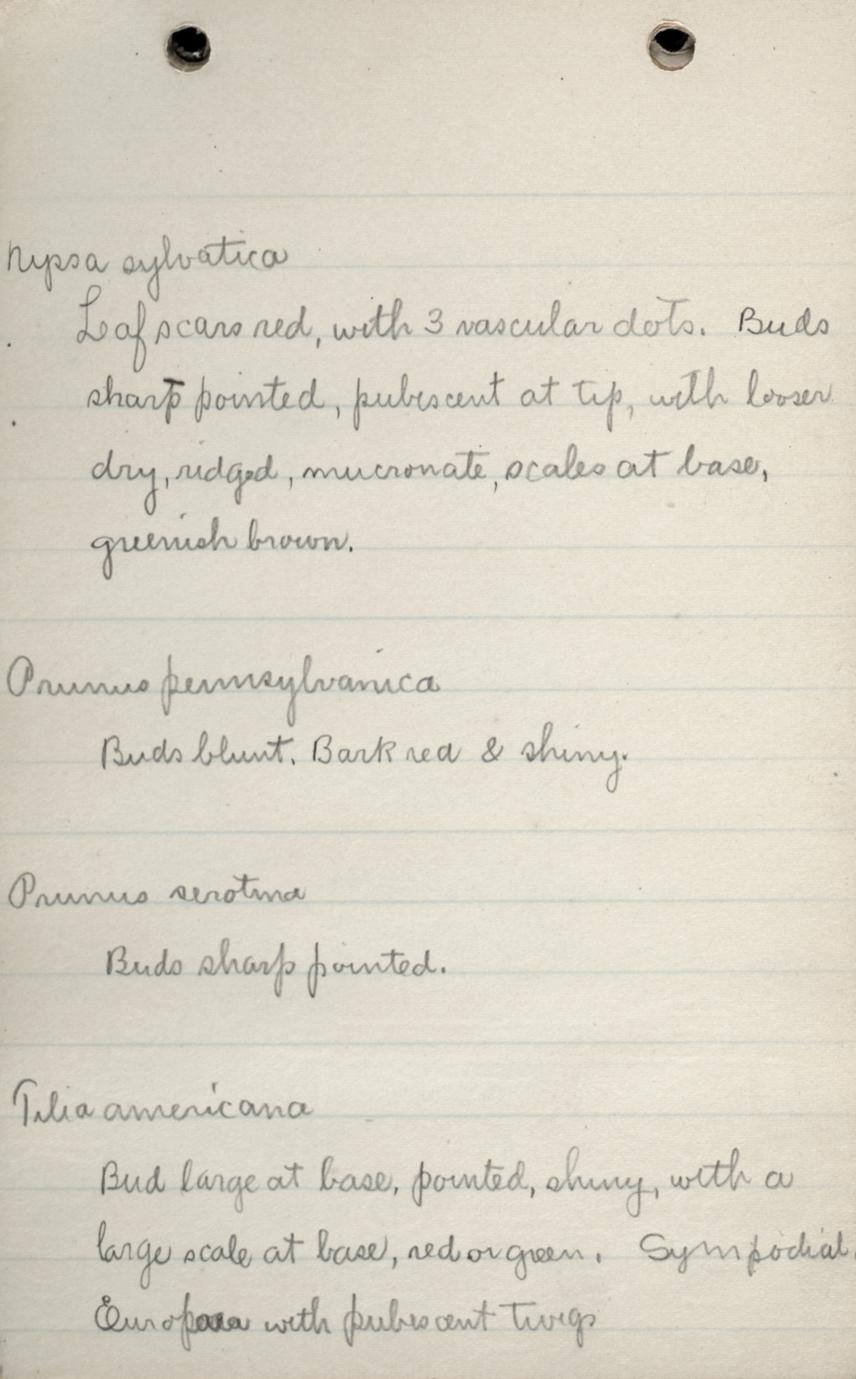 Nyssa sylvatica
Leaf scars red, with 3 vascular dots. Buds
sharp pointed, pubescent at tip, with looser
dry, ridged, mucronate, scales at base,
greenish brown.
Prunus pennsylvanica
Buds blunt. Bark red & shiny.
Prunus serotina
Buds sharp pointed.
Tilia americana
Bud large at base, pointed, shiny, with a
large scale at base, red or green. Sympodial.
Europaea with pubescent twigs